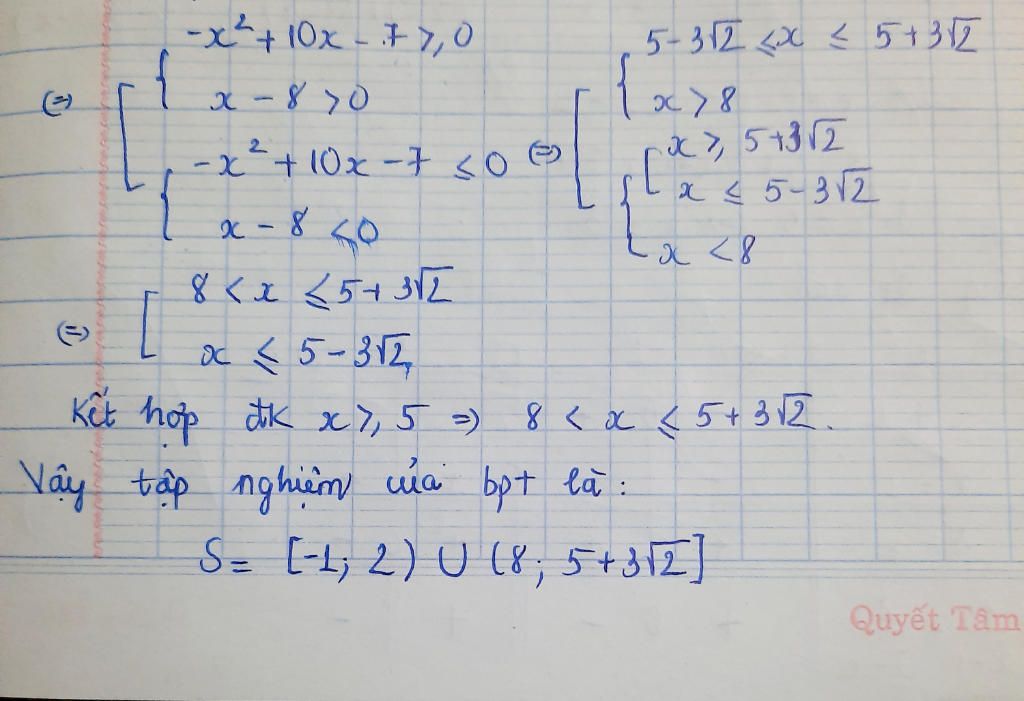 -x² + 10x - 7 ≥ 0
x - 8 > 0
-x² + 10x - 7 ≤ 0
x - 8 < 0
⇔
⇔
5 - 3√2 ≤ x ≤ 5 + 3√2
x > 8
x ≥ 5 + 3√2
x ≤ 5 - 3√2
x < 8
⇔
8 < x ≤ 5 + 3√2
x ≤ 5 - 3√2
Kết hợp đk x ≥ 5 ⇒ 8 < x ≤ 5 + 3√2.
Vậy tập nghiệm của bpt là:
S = [-1; 2) ∪ (8; 5 + 3√2]
Quyết Tâm